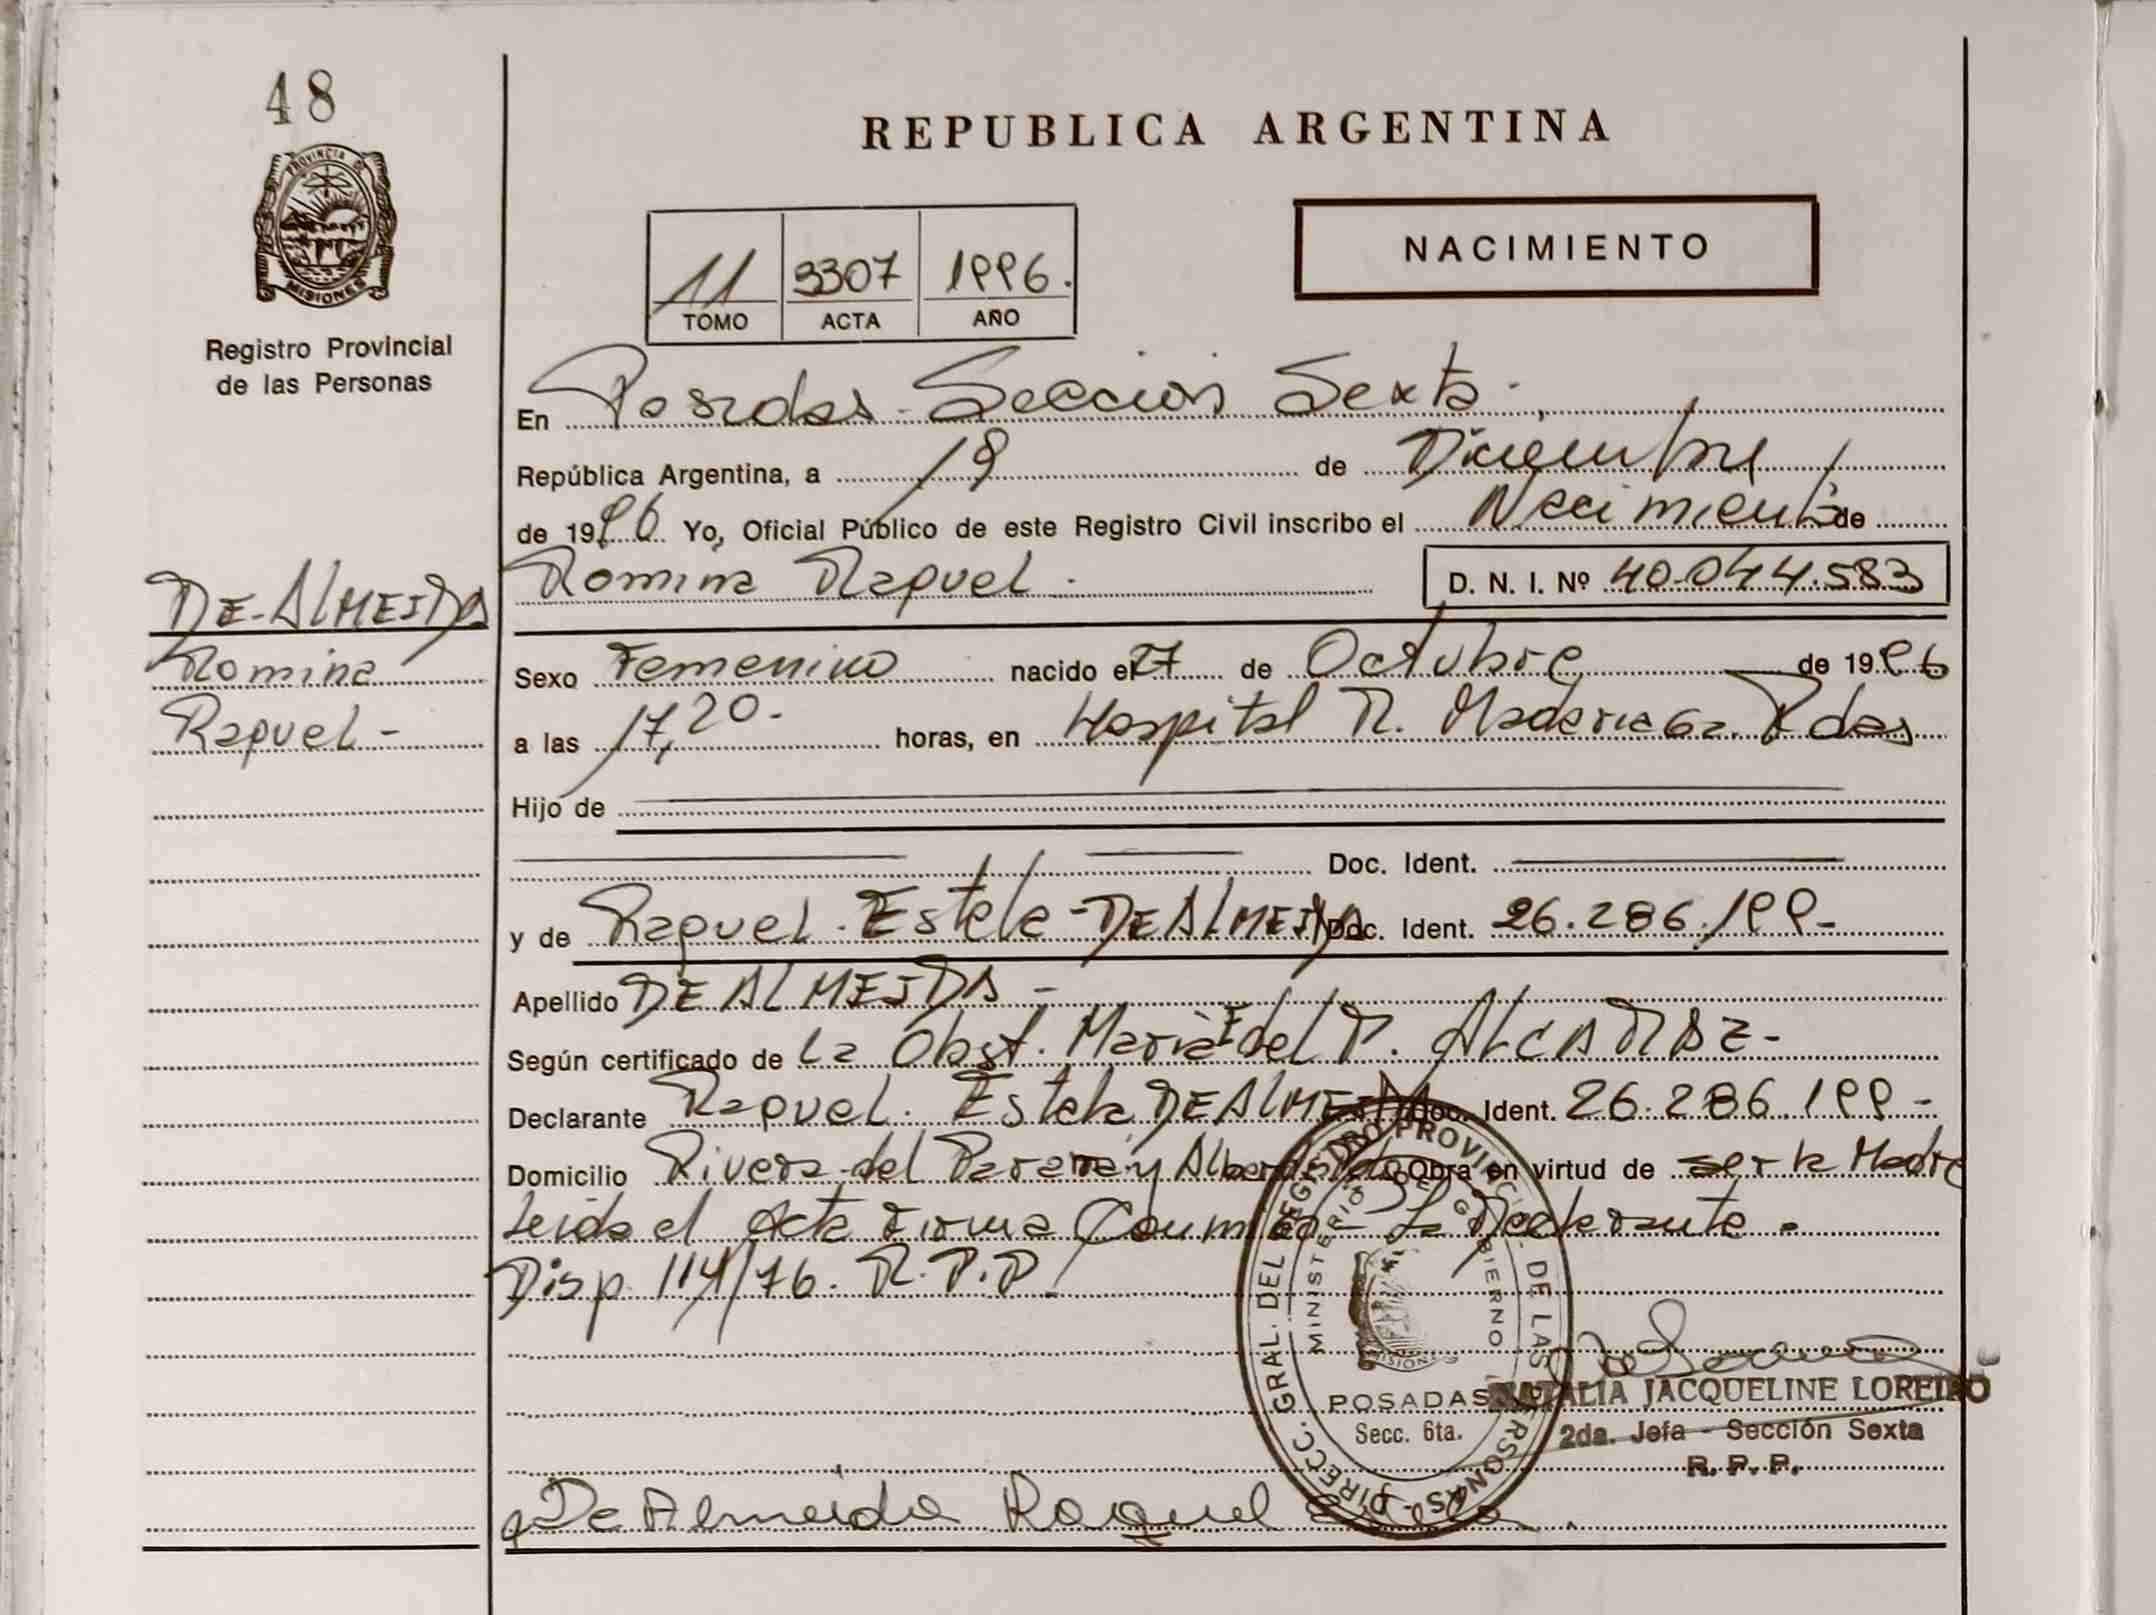 48
PROVINCIA DE
MISIONES
Registro Provincial
de las Personas
REPUBLICA ARGENTINA
11 3307 1996.
TOMO ACTA AÑO
NACIMIENTO
En Posadas - Sección Sexta -
República Argentina, a 19 de Diciembre
de 1996 Yo, Oficial Público de este Registro Civil inscribo el Nacimiento de
Romina Raquel. D. N. I. Nº 40.044.583
DE-ALMEIDA
Romina
Raquel -
Sexo Femenino nacido el 27 de Octubre de 1996
a las 17,20 - horas, en Hospital R. Madariaga. Pdas
Hijo de
Doc. Ident.
y de Raquel. Estela - DE ALMEIDA Doc. Ident. 26.286.199 -
Apellido DE ALMEIDA -
Según certificado de La Obst. María del P.
Declarante Raquel. Estela DE ALMEIDA Doc. Ident. 26.286.199 -
Domicilio Rivera del Paraná y Obra en virtud de ser la Madre
Leida el Acta Firma Conmigo - La Declarante.
Disp. 114/76. R.P.P.
DIRECC. GRAL. DEL REGISTRO PROVINCIAL DE LAS PERSONAS
MINISTERIO DE GOBIERNO
MISIONES
POSADAS
Secc. 6ta.
NATALIA JACQUELINE LOREIRO
2da. Jefa - Sección Sexta
R. P. P.
De Almeida Raquel Estela.